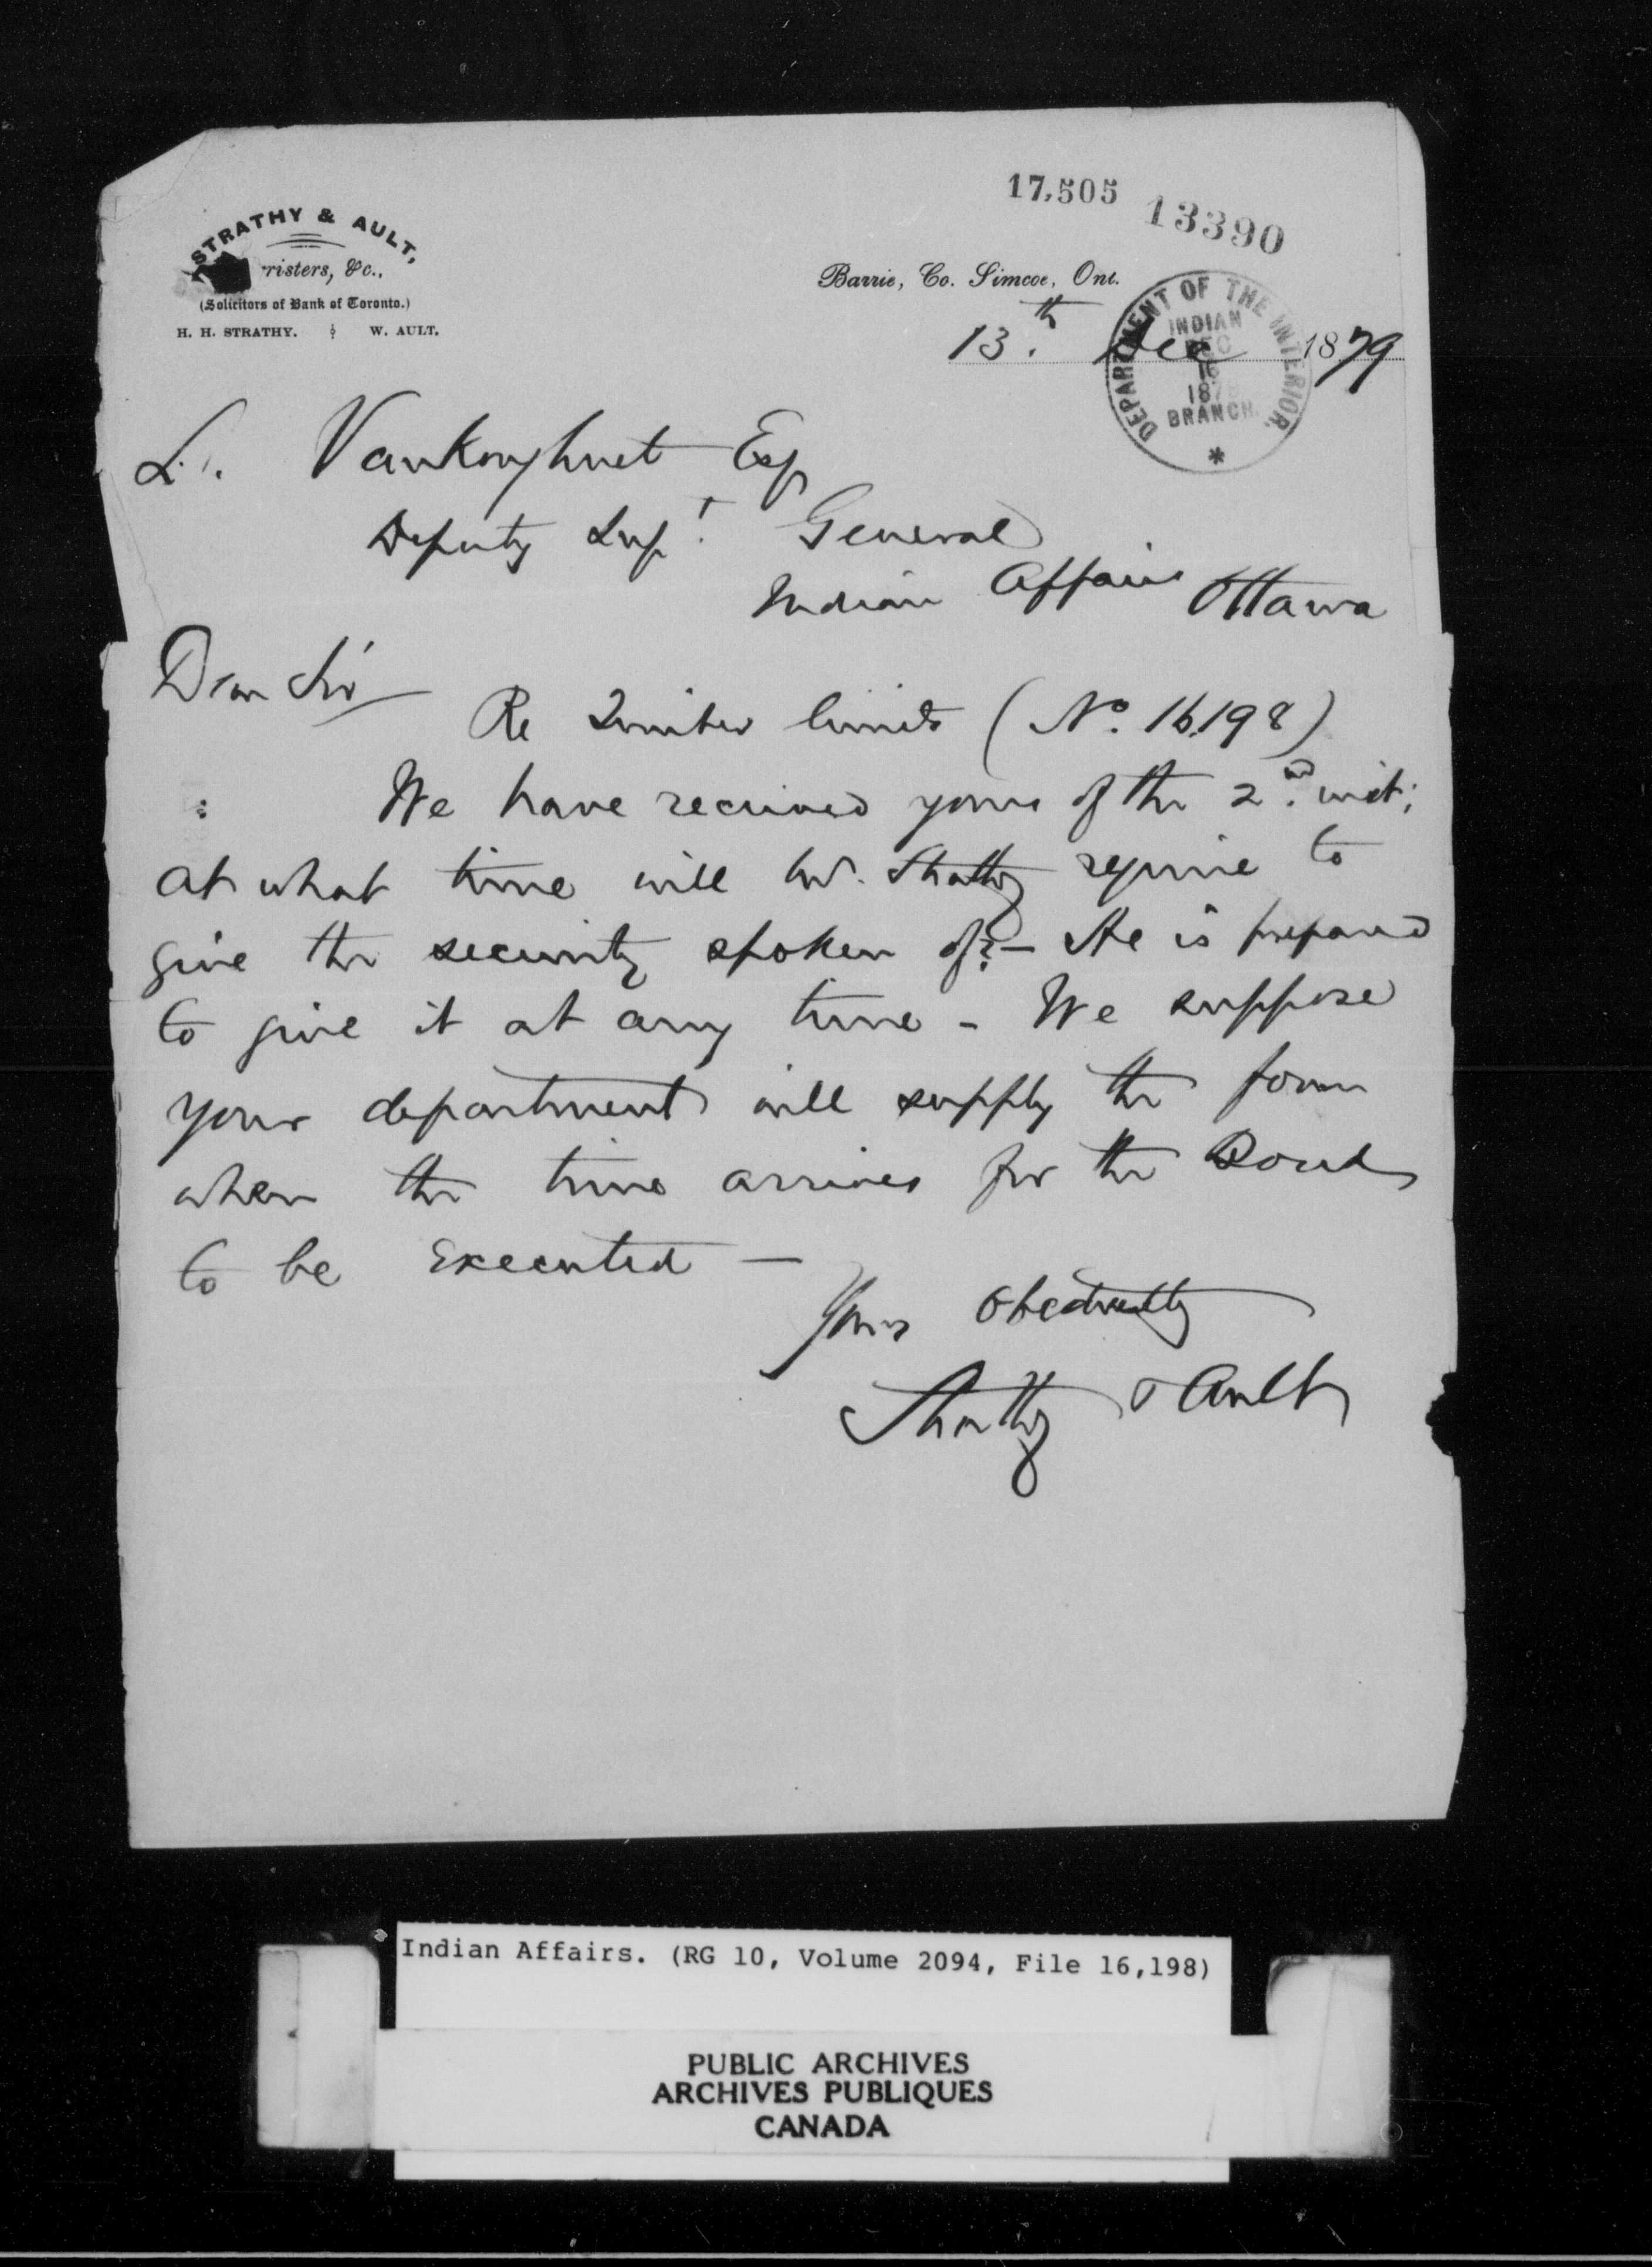 17,505
13390
STRATHY & AULT,
rristers, &c.,
(Solicitors of Bank of Toronto.)
H. H. STRATHY. W. AULT.
Barrie, Co. Simcoe, Ont.
13.th Dec 1879
DEPARTMENT OF THE INTERIOR.
INDIAN
DEC
16
187
BRANCH.
L. Vankoughnet Esq
Deputy Supt. General
Indian Affairs Ottawa
Dear Sir
Re Timber limits (No. 16.198)
We have received yours of the 2nd. inst;
at what time will Mr. Strathy require to
give the security spoken of? - He is prepared
to give it at any time - We suppose
your department will supply the form
when the time arrives for the Bond
to be Executed —
Yours obediently
Strathy & Ault
Indian Affairs. (RG 10, Volume 2094, File 16,198)
PUBLIC ARCHIVES
ARCHIVES PUBLIQUES
CANADA